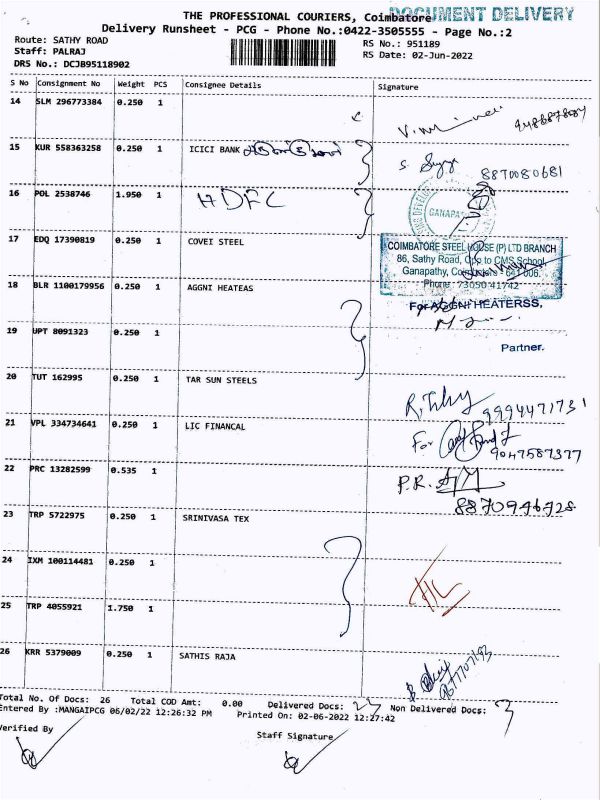 DOCUMENT DELIVERY
THE PROFESSIONAL COURIERS, Coimbatore
Delivery Runsheet - PCG - Phone No.:0422-3505555 - Page No.:2
Route: SATHY ROAD
RS No.: 951189
Staff: PALRAJ
RS Date: 02-Jun-2022
DRS No.: DCJB95118902
S No Consignment No Weight PCS Consignee Details Signature
14 SLM 296773384 0.250 1
15 KUR 558363258 0.250 1 ICICI BANK
S. 8870080681
16 POL 2538746 1.950 1 HDFC
GANAPA
17 EDQ 17390819 0.250 1 COVEI STEEL
COIMBATORE STEEL HOUSE (P) LTD BRANCH
86, Sathy Road, Opp to CMS School,
Ganapathy, Coimbatore - 641 006.
Phone : 73050 41742
18 BLR 1100179956 0.250 1 AGGNI HEATEAS
For AGGNI HEATERSS,
19 UPT 8091323 0.250 1
Partner.
20 TUT 162995 0.250 1 TAR SUN STEELS
9994471731
21 VPL 334734641 0.250 1 LIC FINANCAL
For
9047587377
22 PRC 13282599 0.535 1
P.R.
8870946728
23 TRP 5722975 0.250 1 SRINIVASA TEX
24 IXM 100114481 0.250 1
25 TRP 4055921 1.750 1
26 KRR 5379009 0.250 1 SATHIS RAJA
Total No. Of Docs: 26 Total COD Amt: 0.00 Delivered Docs: Non Delivered Docs:
Entered By :MANGAIPCG 06/02/22 12:26:32 PM Printed On: 02-06-2022 12:27:42
Verified By
Staff Signature